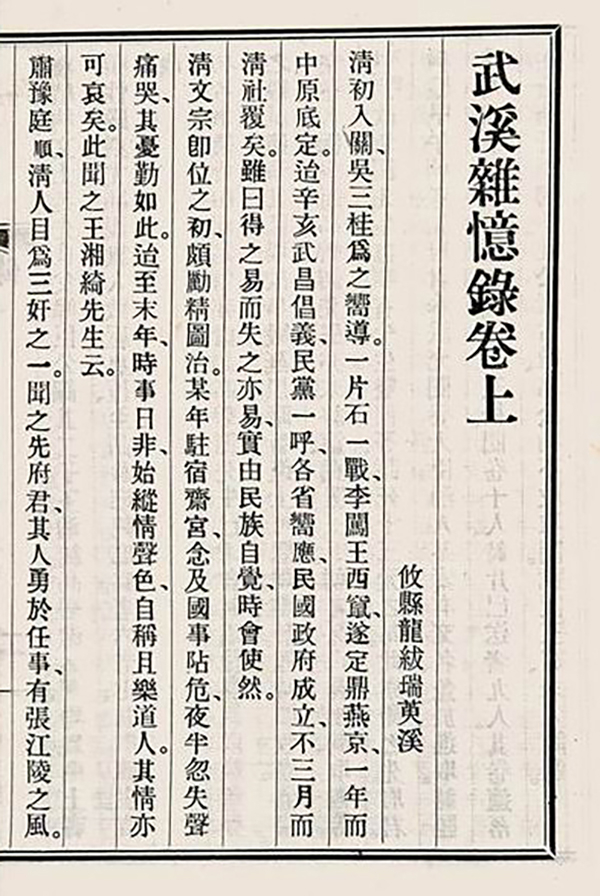 武溪雜憶錄卷上
攸縣龍紱瑞萸溪
清初入關、吳三桂爲之嚮導。一片石一戰、李闖王西竄、遂定鼎燕京、一年而
中原底定。迨辛亥武昌倡義、民黨一呼、各省嚮應、民國政府成立、不三月而
清社覆矣。雖曰得之易而失之亦易、實由民族自覺、時會使然。
清文宗卽位之初、頗勵精圖治。某年駐宿齋宮、念及國事阽危、夜半忽失聲
痛哭、其憂勤如此。迨至末年、時事日非、始縱情聲色、自稱且樂道人。其情亦
可哀矣。此聞之王湘綺先生云。
肅豫庭順、清人目爲三奸之一。聞之先府君、其人勇於任事、有張江陵之風。